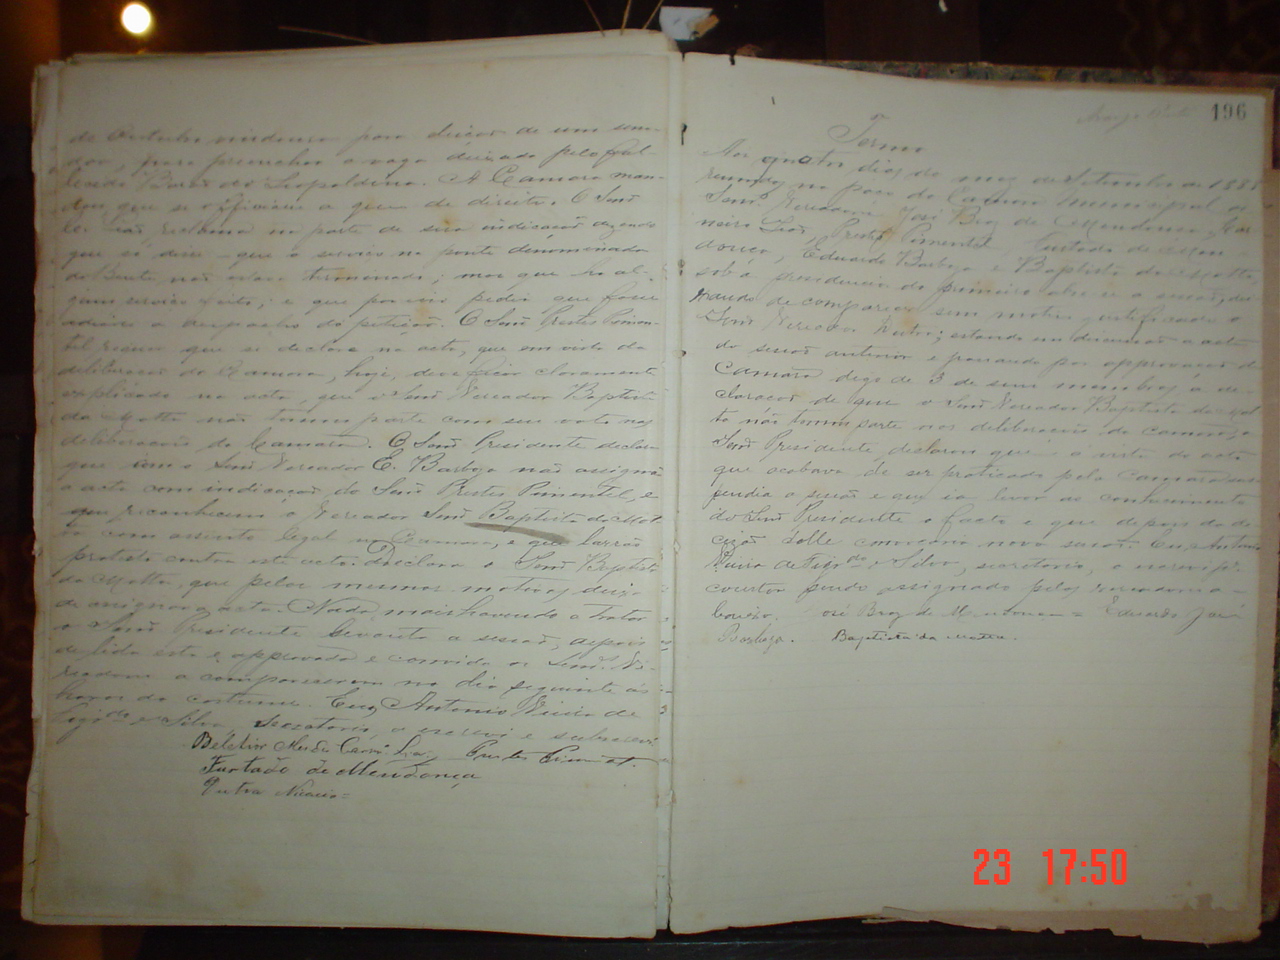 de Outubro vindouro para eleição de um sena-
dor, para preencher a vaga deixada pelo fal-
lecido Barão de Leopoldina. A Camara man-
dou que se officiasse a quem de direito. O Senr
Leão reclama na parte de sua indicação dizendo
que só disse que o serviço na ponte denominada
do não estava terminado; mas que ha al-
gum serviço feito; e que por isso pedia que fosse
adiado o despacho da petição. O Senr Prestes Pimen-
tel requer que se declare na acta, que em vista da
deliberação da Camara, hoje, deve ficar claramente
explicado na acta, que o Senr Vereador Baptista
da Motta não tomou parte com seu voto nas
deliberações da Camara. O Senr Presidente declara
que com o Senr Vereador E. Barboza não assigna
a acta com indicação do Senr Prestes Pimentel, e
que reconhecem o Vereador Senr Baptista da Mot-
ta com assento legal na Camara, e que
protesto contra este acto. Declara o Senr Baptista
da Motta, que pelos mesmos motivos deixa
de assignar a acta. Nada mais havendo a tratar
o Senr Presidente levanta a sessão, depois
de lida esta e approvada e convida os Senrs Ve-
readores a comparecerem no dia seguinte ás
horas do costume. Eu, Antonio Vieira de
Figdo e Silva, Secretario, o escrevi e subscrevi
Leão Prestes Pimentel.
Furtado de Mendonça
Dutra Nicacio =
196
Termo
Aos quatro dias do mez de Setembro de 1888
reunidos no paço da Camara Municipal os
Senrs Vereadores José Braz de Mendonça, Car-
neiro Leão, Prestes Pimentel, Furtado de Men-
donça, Eduardo Barboza e Baptista da Motta,
sob a presidencia do primeiro abre-se a sessão, dei-
xando de comparecer sem motivo justificado o
Senr Vereador Dutra; estando em discussão a acta
da sessão anterior e passando por approvação da
Camara digo de 3 de seus membros a de-
claração de que o Senr Vereador Baptista da Mot-
ta não tomou parte nas deliberações da Camara, o
Senr Presidente declarou que á vista do acto
que acabava de ser praticado pela Camara sus-
pendia a sessão e que ia levar ao conhecimento
do Senr Presidente o facto e que depois da de-
cizão delle convocaria nova sessão. Eu, Antonio
Vieira de Figdo e Silva, secretario, o escrevi
sendo assignado pelos vereadores a-
baixo. José Braz de Mendonça = Eduardo José
Barboza. Baptista da Motta.
23 17:50